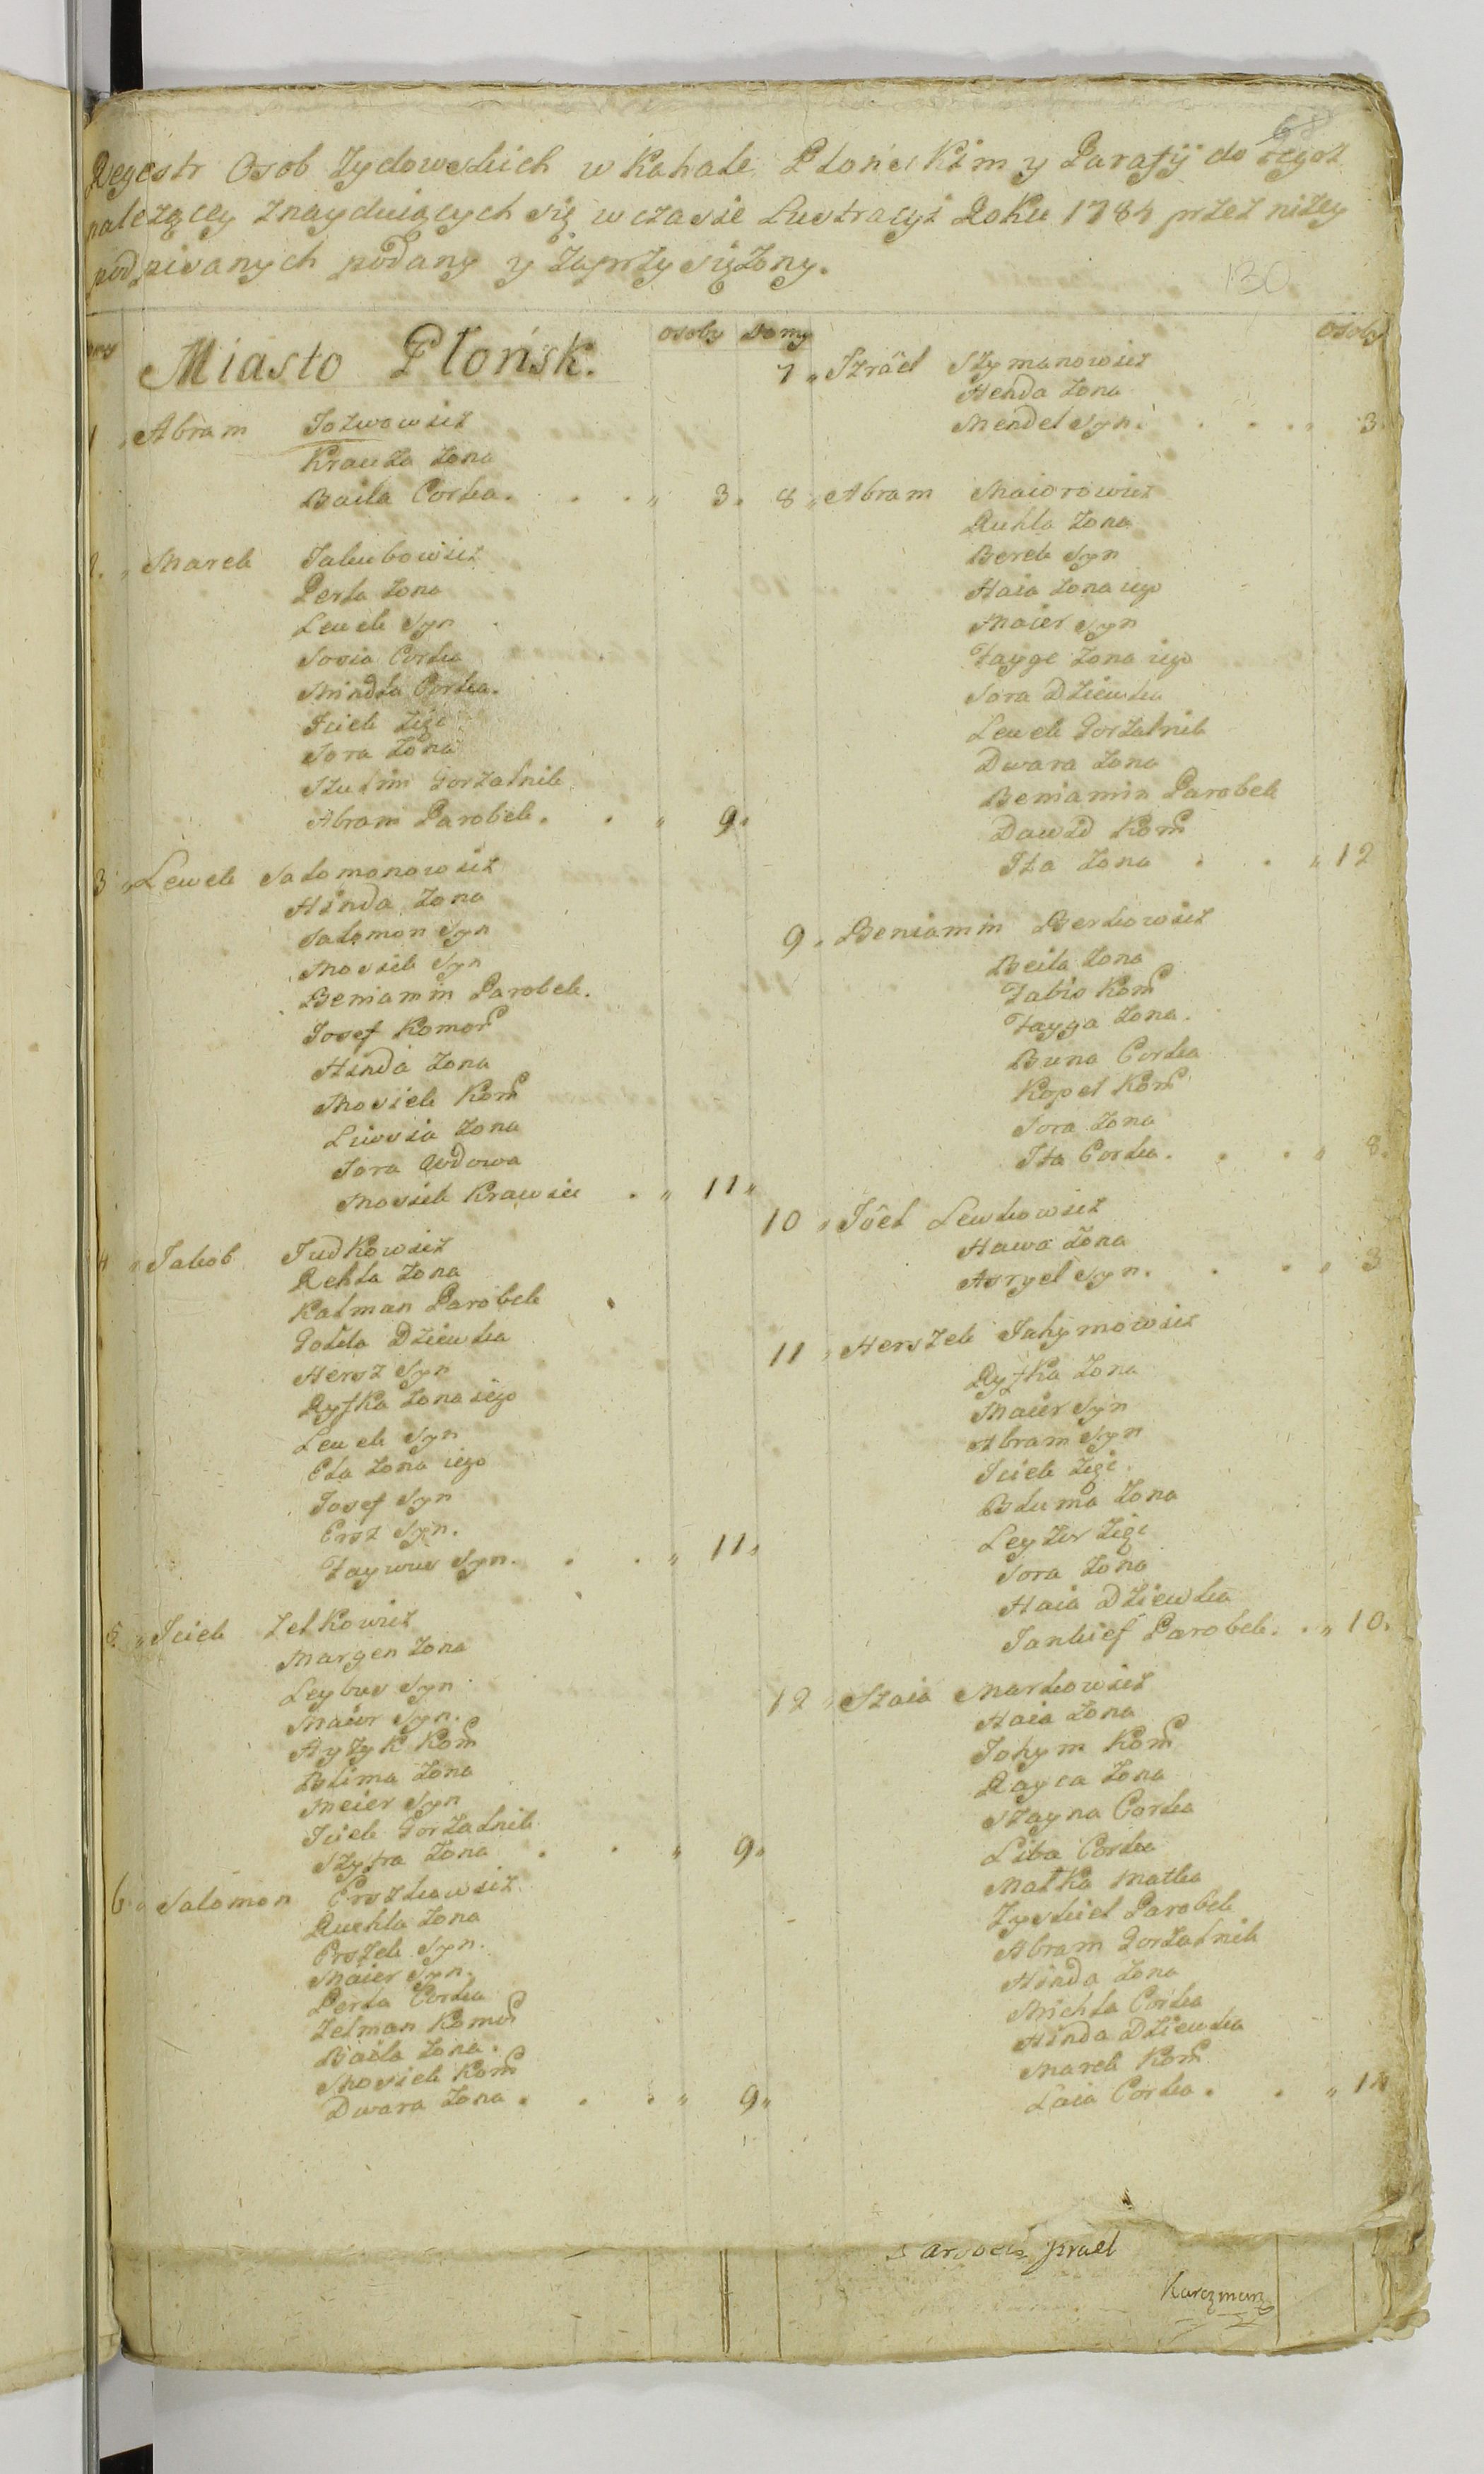 68
Regestr Osob Zydowskich w Kahale Płońskim y Parafij do tegoż
należącey znayduiących się w czasie Lustracyi Roku 1784 przez niżey
podpisanych podany y zaprzysiężony.
130
Domy
Miasto Płońsk.
Osoby
1 „ Abram Jozwowicz
Krauza Zona
Baila Corka. . . „ 3.
2. „ Marek Jakubowicz
Perla Zona
Lewek Syn
Sosia Corka
Mindla Corka.
Jciek Zięć
Sora Zona
Szulim Gorzalnik
Abram Parobek. . „ 9.
3 „ Lewek Salomonowicz
Hinda Zona
Salomon Syn
Mosiek Syn
Beniamin Parobek.
Josef Komor
Hinda Zona
Mosiek Kom
Liwsia Zona
Sora Wdowa
Mosiek Krawiec . „ 11 „
4 „ Jakob Judkowicz
Rehla Zona
Kalman Parobek
Golda Dziewka
Hersz Syn
Ryfka Zona iego
Lewek Syn
Ela Zona iego
Josef Syn
Ersz Syn.
Faywus Syn. . . „ 11 „
5. „ Jciek Zelkowicz
Margen Zona
Leybus Syn
Maior Syn.
Ayzyk Kom
Blima Zona
Meier Syn
Jciek Gorzalnik
Szyfra Zona . . „ 9.
6 „ Salomon Erszkowicz
Ruchla Zona
Erszek Syn.
Maier Syn.
Perla Corka
Zelman Komor
Baila Zona.
Mosiek Kom
Dwara Zona . . . „ 9 „
Domy
Osoby
7 „ Jzrael Szymanowicz
Henda Zona
Mendel Syn. . . . „ 3.
8 „ Abram Maiorowicz
Ruhla Zona
Berek Syn
Haia Zona iego
Maier Syn
Fayge Zona iego
Sora Dziewka
Lewek Gorzalnik
Dwara Zona
Beniamin Parobek
Dawid Kom
Ita Zona . . „ 12
9 „ Beniamin Berkowicz
Beila Zona
Fabis Kom
Fayga Zona.
Buna Corka
Kopel Kom
Sora Zona
Ita Corka. . . „ 8.
10 „ Joel Lewkowicz
Hawa Zona
Asryel Syn. . . „ 3
11 „ Herszek Jahymowicz
Ryfka Zona
Maier Syn
Abram Syn
Jciek Zięć.
Bluma Zona
Leyzor Zięć
Sora Zona
Haia Dziewka
Jankief Parobek. . „ 10.
12 „ Szaia Markowicz
Haia Zona
Johym Kom
Rayca Zona
Szayna Corka
Liba Corka
Małka Matka
Zyskiel Parobek
Abram Gorzalnik
Hinda Zona
Michla Corka
Hinda Dziewka
Marek Kom
Laia Corka . . „ 14
Jzrael
Karczmarz